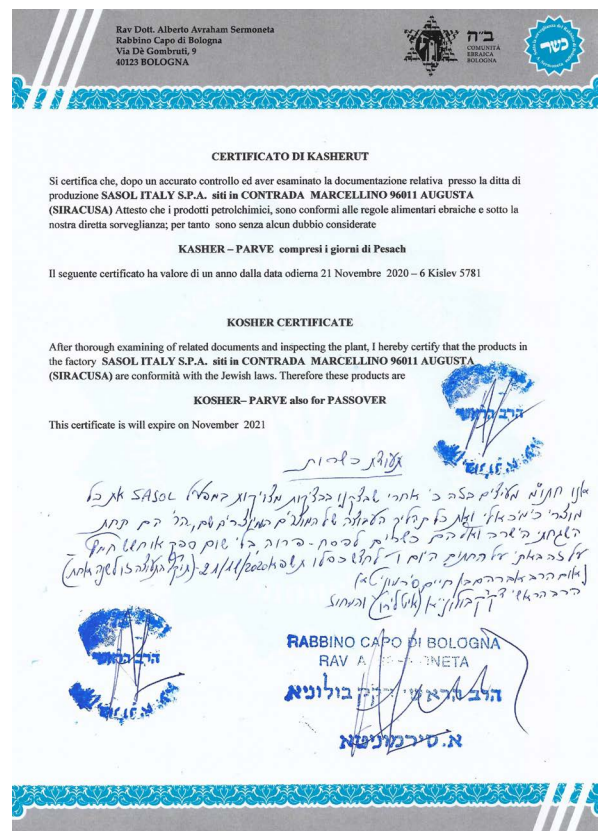 Rav Dott. Alberto Avraham Sermoneta
Rabbino Capo di Bologna
Via Dè Gombruti, 9
40123 BOLOGNA
ב״ה
COMUNITÀ
EBRAICA
BOLOGNA
כשר
CERTIFICATO DI KASHERUT
Si certifica che, dopo un accurato controllo ed aver esaminato la documentazione relativa presso la ditta di
produzione SASOL ITALY S.P.A. siti in CONTRADA MARCELLINO 96011 AUGUSTA
(SIRACUSA) Attesto che i prodotti petrolchimici, sono conformi alle regole alimentari ebraiche e sotto la
nostra diretta sorveglianza; per tanto sono senza alcun dubbio considerate
KASHER – PARVE compresi i giorni di Pesach
Il seguente certificato ha valore di un anno dalla data odierna 21 Novembre 2020 – 6 Kislev 5781
KOSHER CERTIFICATE
After thorough examining of related documents and inspecting the plant, I hereby certify that the products in
the factory SASOL ITALY S.P.A. siti in CONTRADA MARCELLINO 96011 AUGUSTA
(SIRACUSA) are conformità with the Jewish laws. Therefore these products are
KOSHER– PARVE also for PASSOVER
This certificate is will expire on November 2021
הרב הראשי
תעודת כשרות
אנו חתומי מעידים בזה כי אחרי שבדקנו במפעל SASOL את כל
ואת כל תהליך העבודה של המוצרים שם, הם תחת
השגחתי הישרה ואלה הם כשרים לפסח - פרוה בלי שום ספק או חשש חמץ
על זה באתי על החתום היום ו׳ לחדש כסלו תשפ״א 21/11/2020
נאום הרב אברהם בן חיים
הרב הראשי
הרב הראשי
RABBINO CAPO DI BOLOGNA
RAV A
הרב הראשי דק״ק בולוניא
א. סירמוניטא